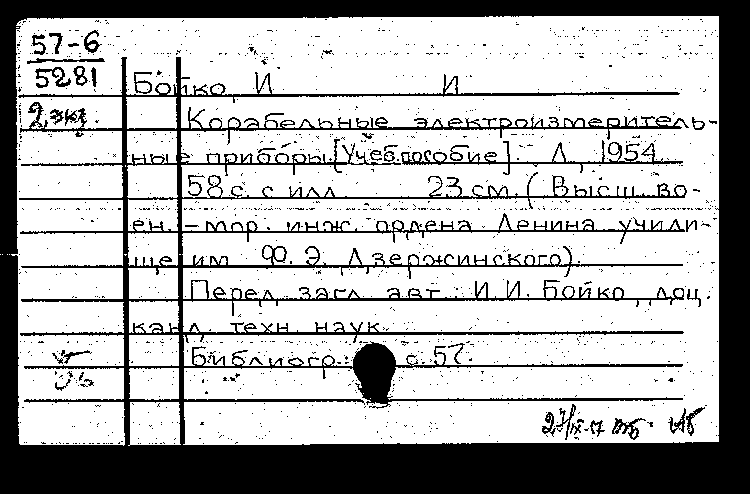 57-6
5281
Бойко, И И
2 экз.
Корабельные электроизмеритель-
ные приборы. [Учеб. пособие]. Л., 1954
58 с. с илл 23 см. (Высш. во-
ен.-мор. инж. ордена Ленина учили-
ще им Ф. Э. Дзержинского).
Перед загл. авт.: И. И. Бойко, доц.
канд. техн. наук
Библиогр.: с. 57.